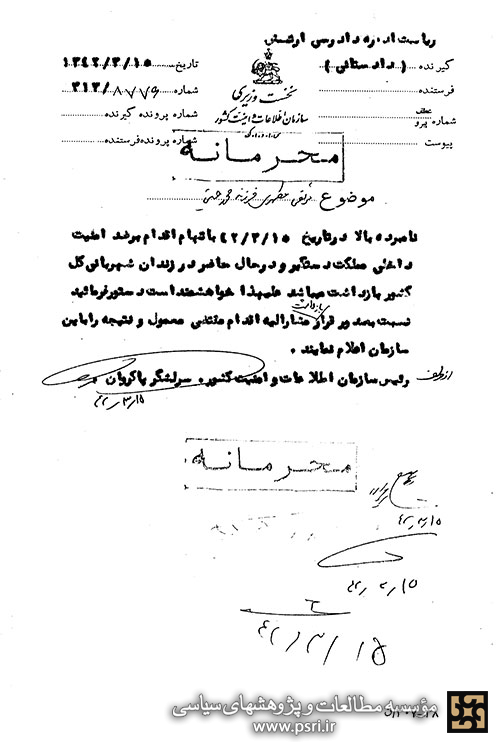 ریاست اداره دادرسی ارتش
گیرنده ( دادستانی )
تاریخ ۱۳۴۲/۳/۱۵
فرستنده
نخست وزیری
شماره ۳۱۲/۸۷۷۹
سازمان اطلاعات و امنیت کشور
عطف
شماره پرو
شماره پرونده گیرنده
پیوست
شماره پرونده فرستنده
محرمانه
موضوع مرتضی مطهری فرزند محمدحسین
نامبرده بالا در تاریخ ۴۲/۳/۱۵ باتهام اقدام برضد امنیت
داخلی مملکت دستگیر و در حال حاضر در زندان شهربانی کل
کشور بازداشت میباشد علیهذا خواهشمند است دستور فرمائید
نسبت بصدور قرار بازداشت مشارالیه اقدام مقتضی معمول و نتیجه را باین
سازمان اعلام نمایند .
از طرف رئیس سازمان اطلاعات و امنیت کشور . سرلشگر پاکروان
۴۲/۳/۱۵
محرمانه
۴۲/۳/۱۵
۴۲/۳/۱۵
۴۲/۳/۱۵
مؤسسه مطالعات و پژوهشهای سیاسی
www.psri.ir